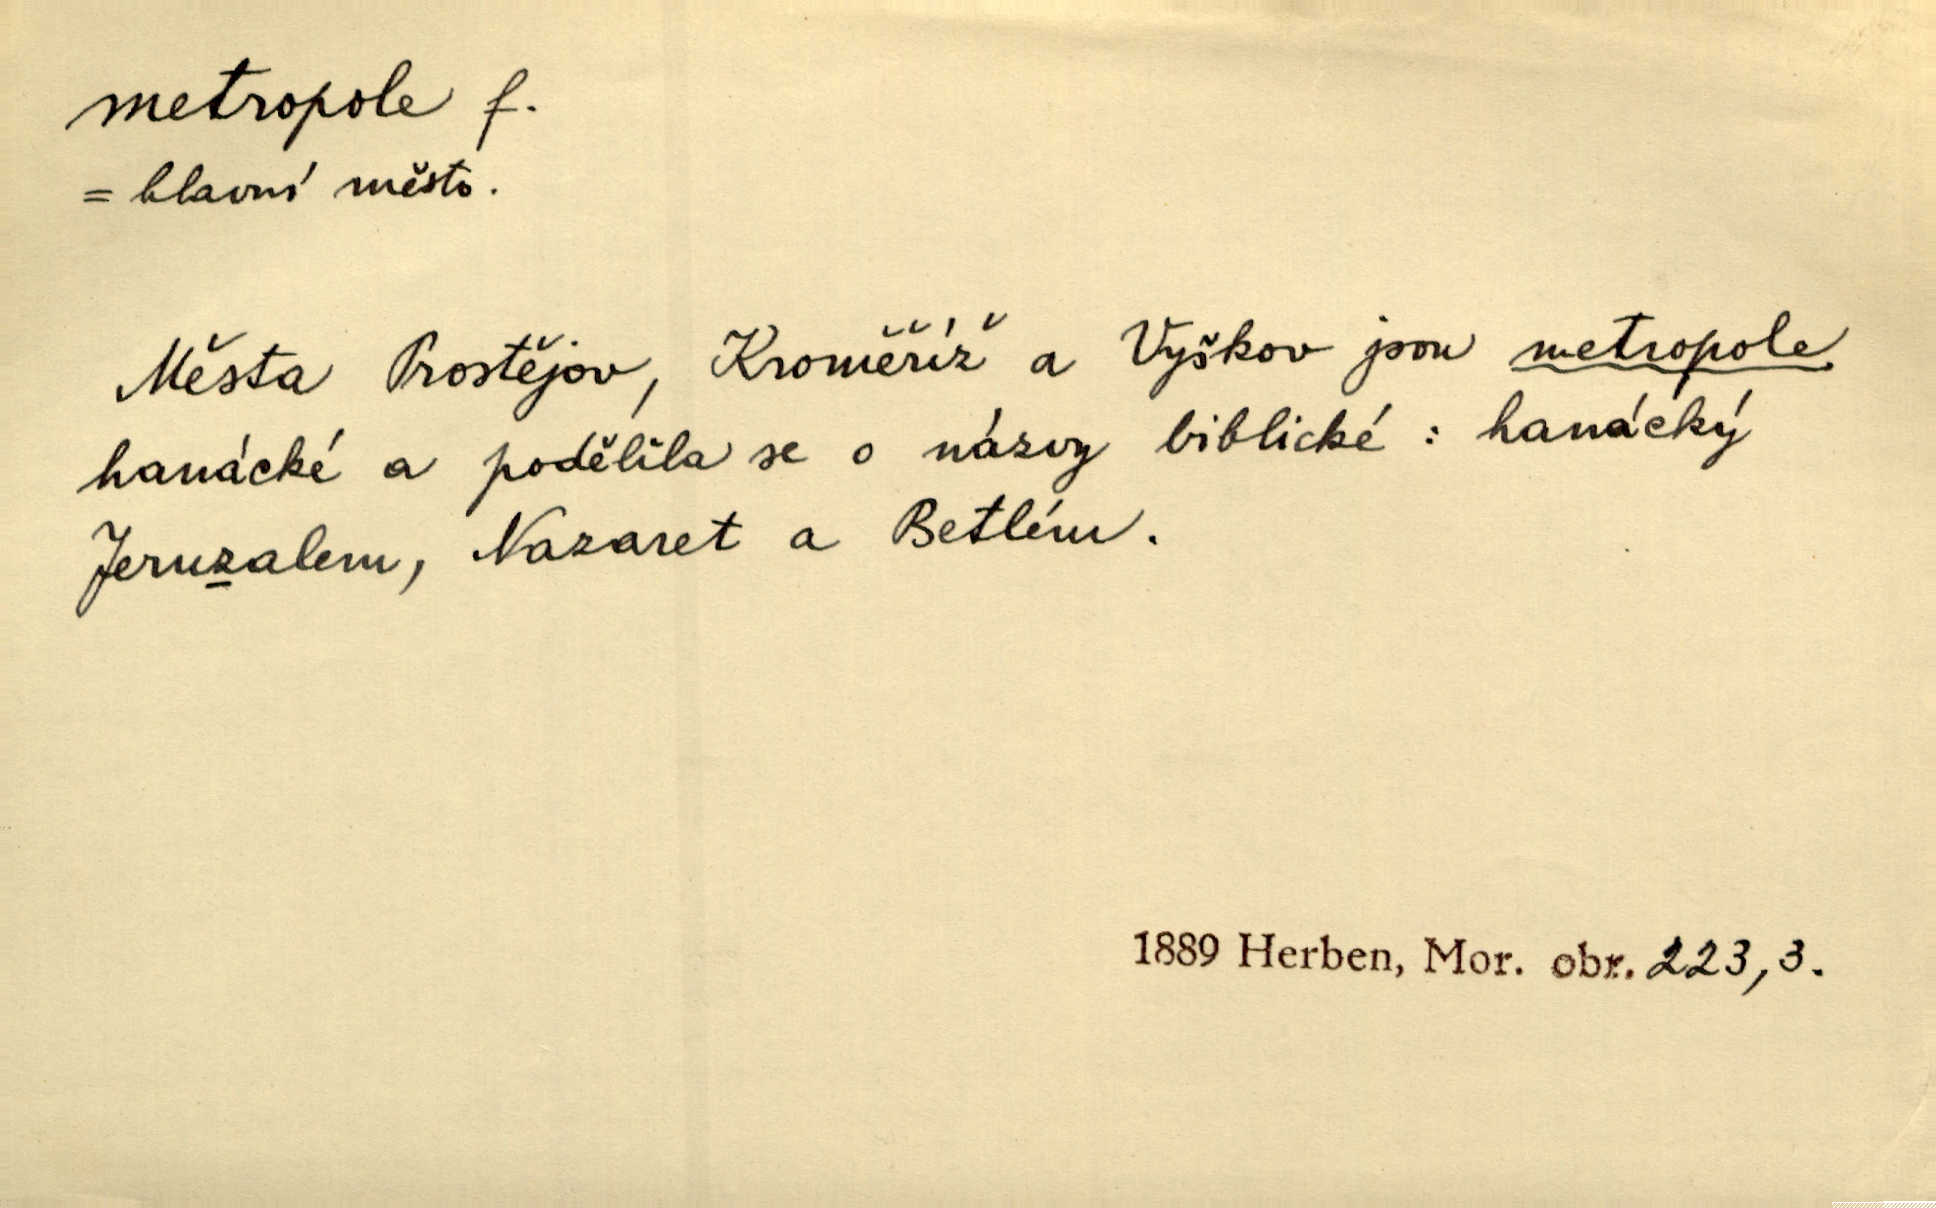 metropole f.
= hlavní město.
Města Prostějov, Kroměříž a Vyškov jsou metropole
hanácké a podělila se o názvy biblické : hanácký
Jeruzalem, Nazaret a Betlém.
1889 Herben, Mor. obr. 223,3.